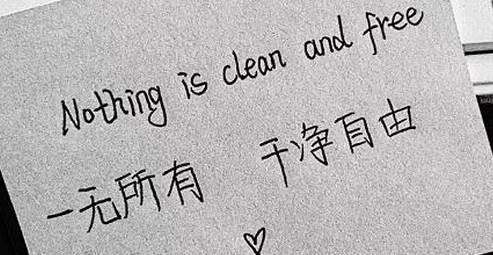 Nothing is clean and free
一无所有 干净自由